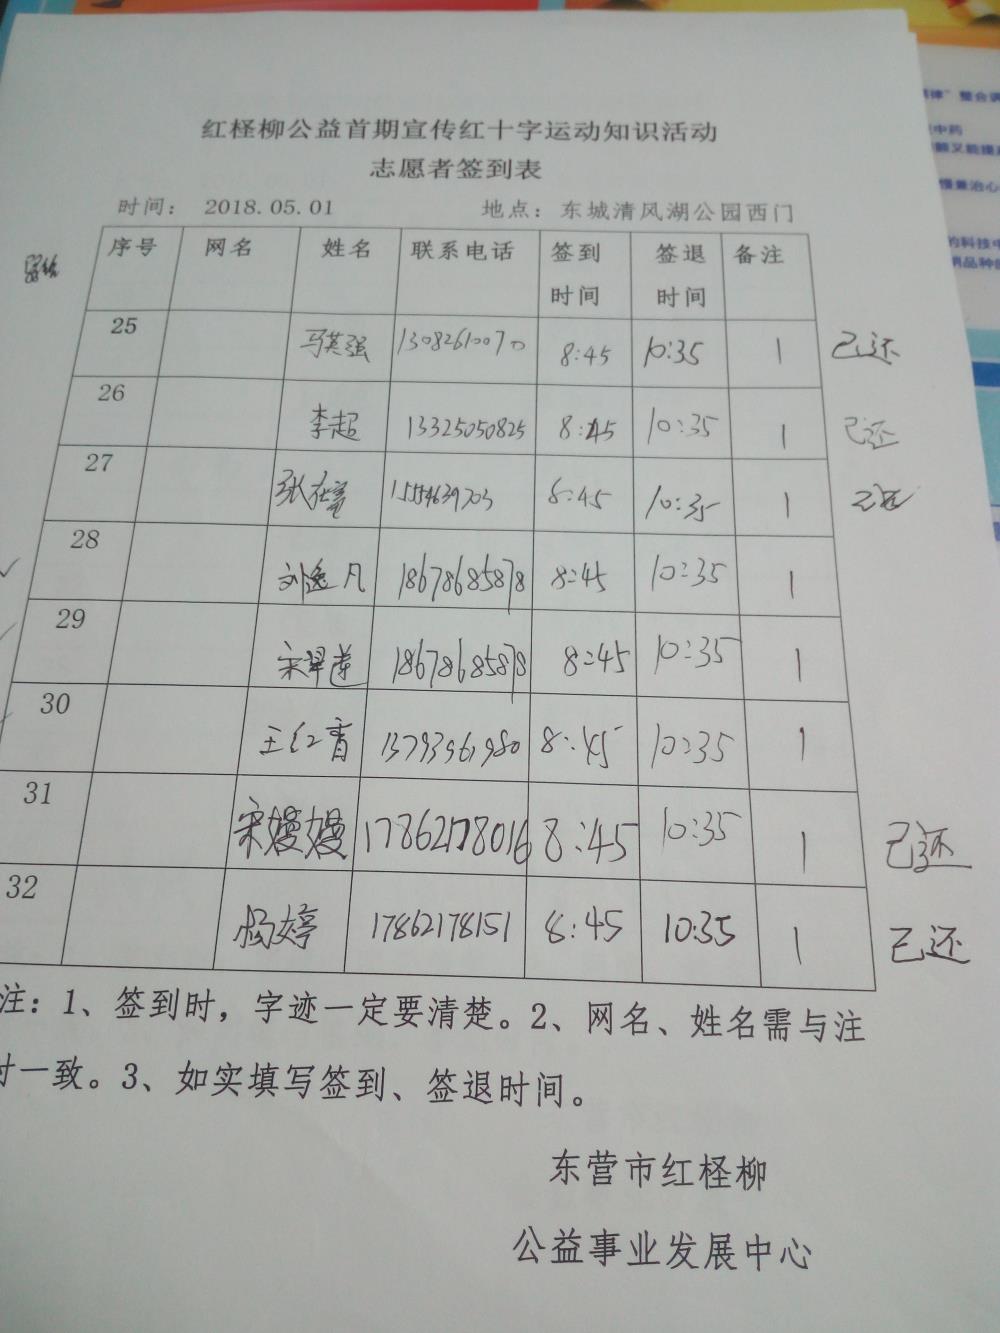 红柽柳公益首期宣传红十字运动知识活动
志愿者签到表
时间： 2018.05.01 地点：东城清风湖公园西门
序号 网名 姓名 联系电话 签到时间 签退时间 备注
25 马英强 13082610070 8:45 10:35 1 已还
26 李超 13325050825 8:45 10:35 1 已还
27 1554639703 8:45 10:35 1 已还
28 刘逸凡 18678685878 8:45 10:35 1
29 宋翠莲 18678685878 8:45 10:35 1
30 王红香 13793961980 8:45 10:35 1
31 宋嫚嫚 17862178016 8:45 10:35 1 已还
32 杨婷 17862178151 8:45 10:35 1 已还
注：1、签到时，字迹一定要清楚。2、网名、姓名需与注
时一致。3、如实填写签到、签退时间。
东营市红柽柳
公益事业发展中心
律"整合调
中药
的科技中